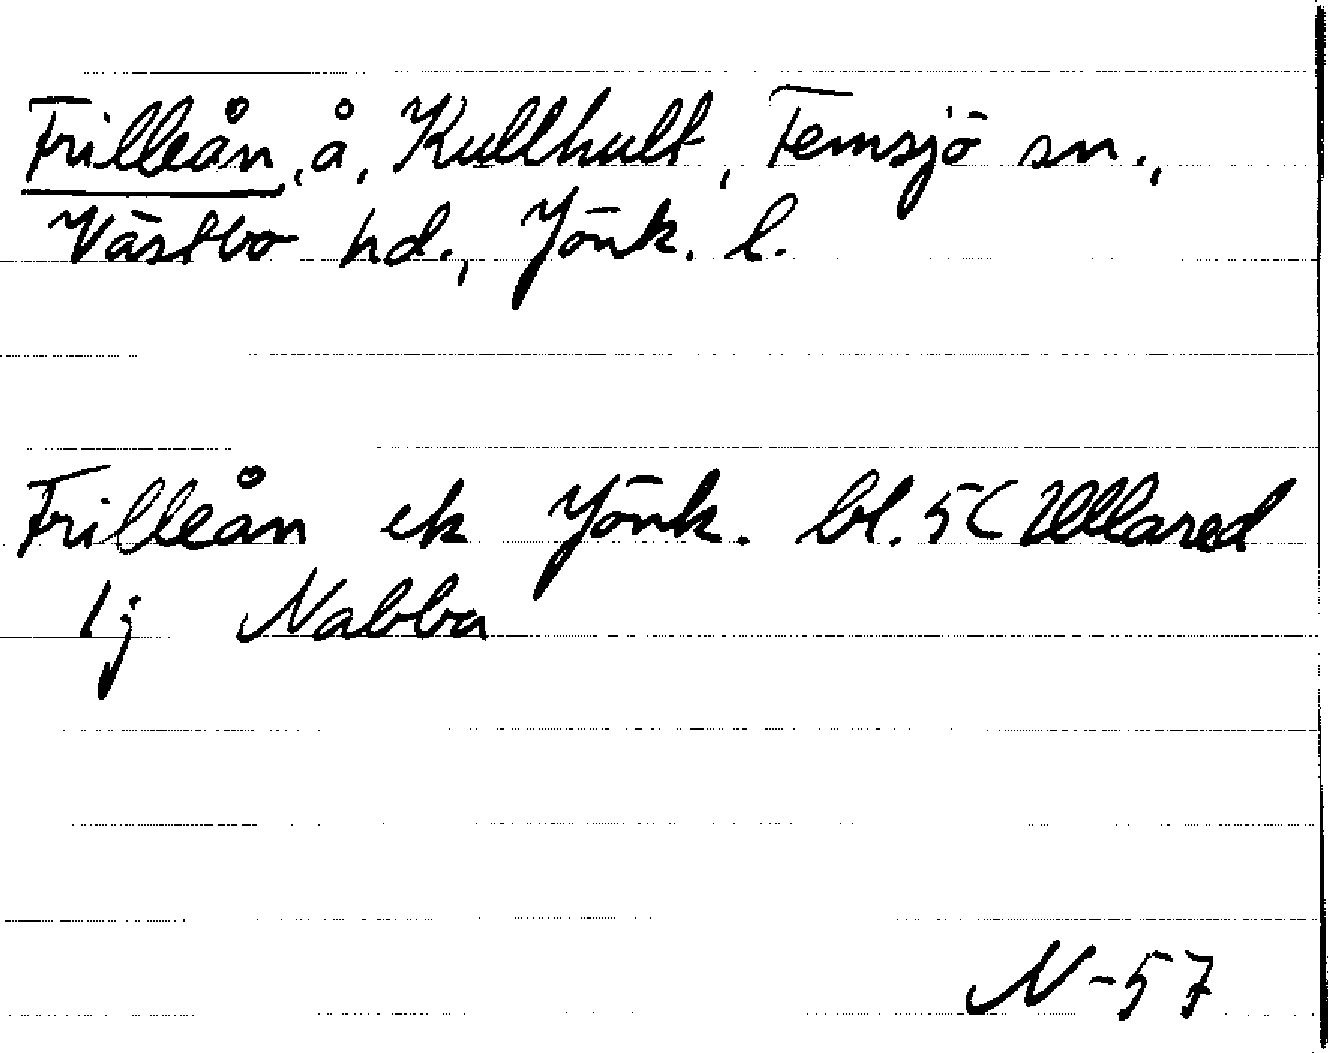 Frilleån, å, Kullhult, Femsjö sn.,
Västbo hd., Jönk. l.
Frilleån ek Jönk. bl. 5C Ullared
1j Nabba
N-57